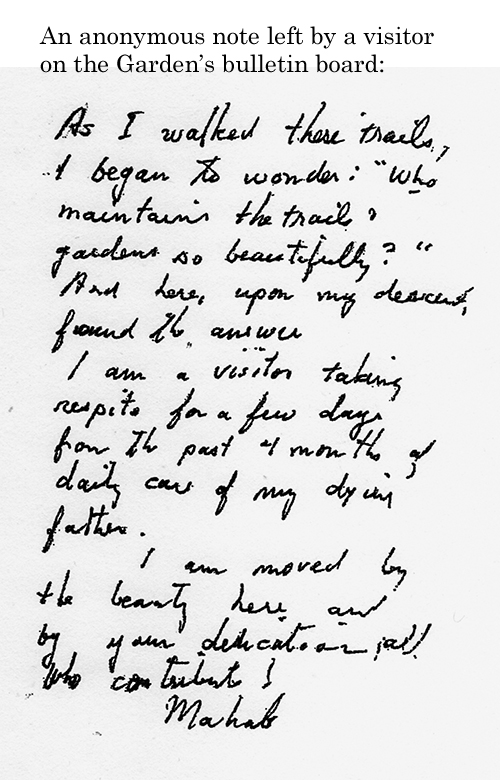 An anonymous note left by a visitor
on the Garden’s bulletin board:
As I walked these trails,
I began to wonder: "Who
maintains the trails &
gardens so beautifully?"
And here, upon my descent,
found the answer
I am a visitor taking
respite for a few days
from the past 4 months of
daily care of my dying
father.
I am moved by
the beauty here and
by your dedication, all
who contribute!
Mahalo